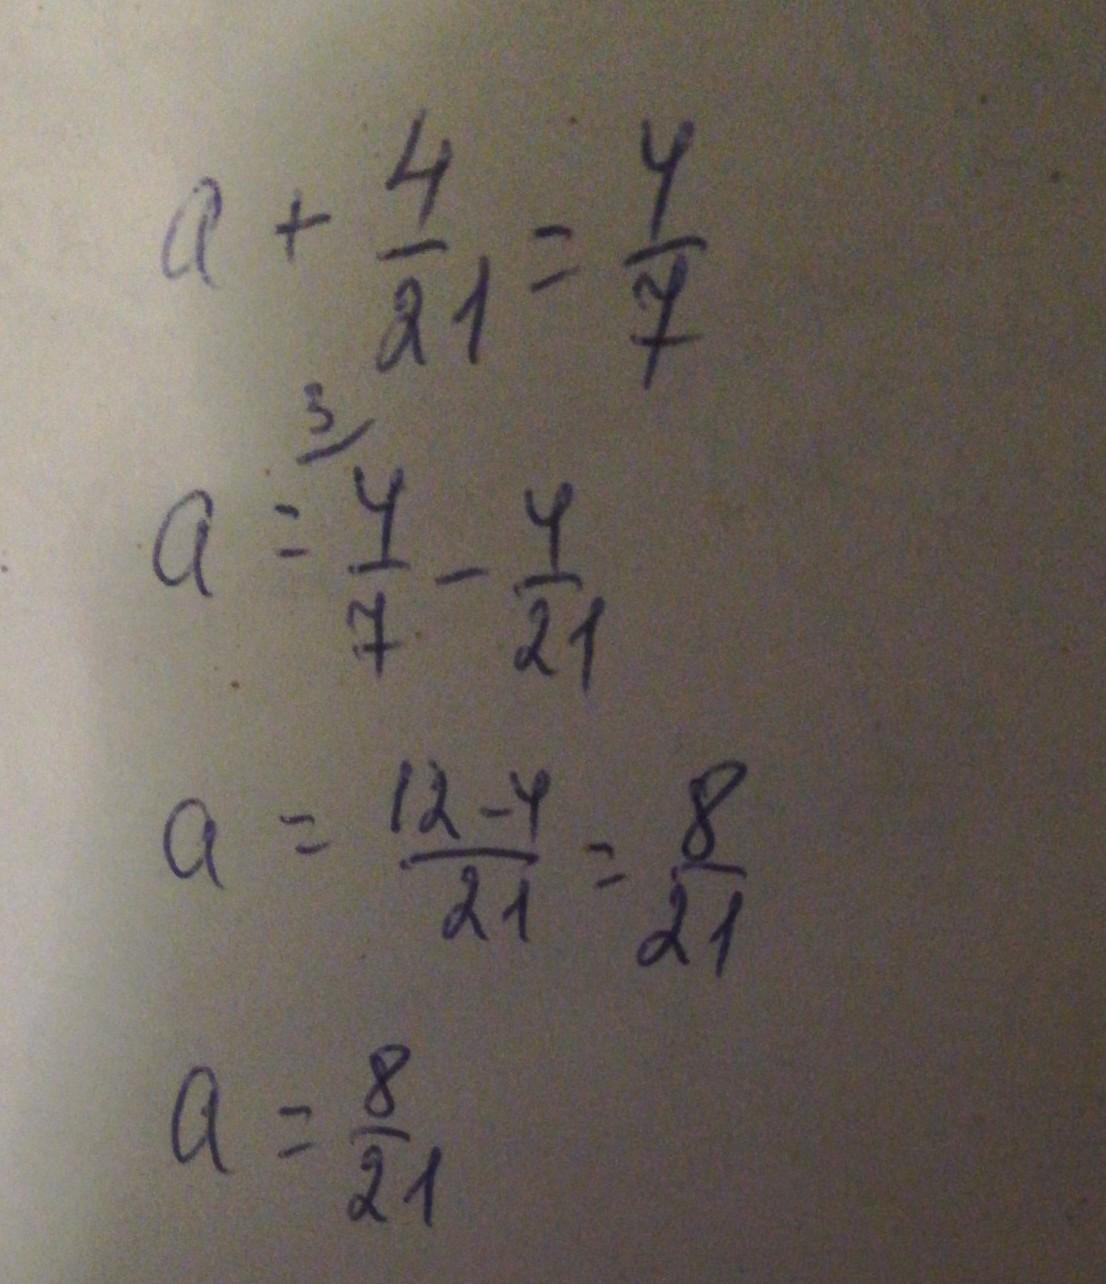 a + 4/21 = 4/7
a = 3/ 4/7 - 4/21
a = 12-4/21 = 8/21
a = 8/21